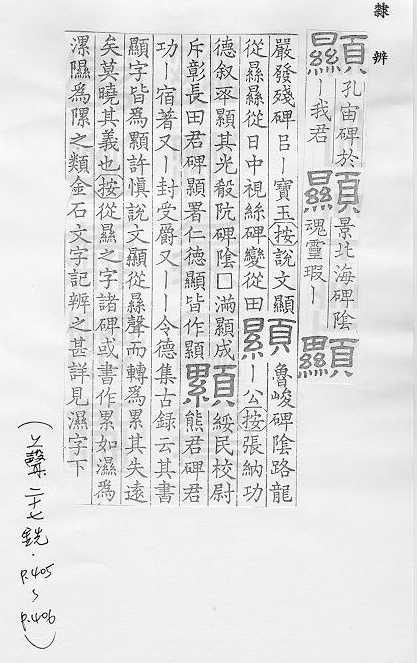 隸辨
顯
孔宙碑於
｜我君
顯
景北海碑陰
魂靈瑕｜
顯
嚴發殘碑呂｜寶玉按說文顯
從㬎㬎從日中視絲碑變從田
顯
魯峻碑陰路龍
｜公按張納功
德叙卒顯其光殽阮碑陰□滿顯成
斥彰長田君碑顯署仁德顯皆作顯
顯
綏民校尉
熊君碑君
功｜宿著又｜封受爵又｜｜令德集古録云其書
顯字皆為顯許慎說文顯從㬎聲而轉為累其失遠
矣莫曉其義也按從㬎之字諸碑或書作累如濕為
漯隰為隟之類金石文字記辨之甚詳見濕字下
(上聲二十七銑．P.405~P.406)